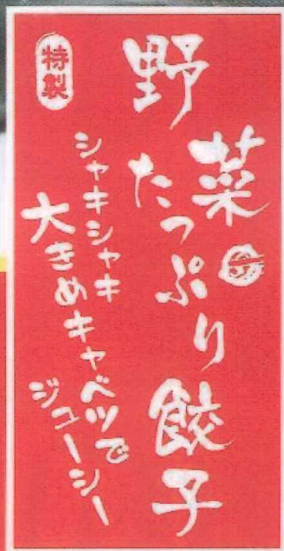 特製
野菜たっぷり餃子
シャキシャキ
大きめキャベツで
ジューシー